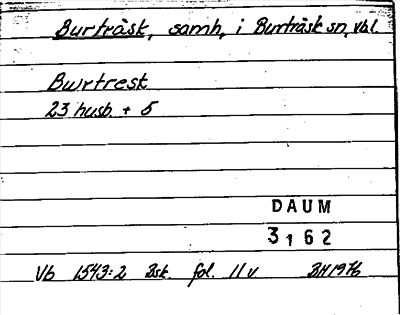 Burträsk, samh, i Burträsk sn, vbl.
Burtrest
23 husb. + 5
DAUM
3162
Vb 1543:2 Bsk. fol. 11v BH1976